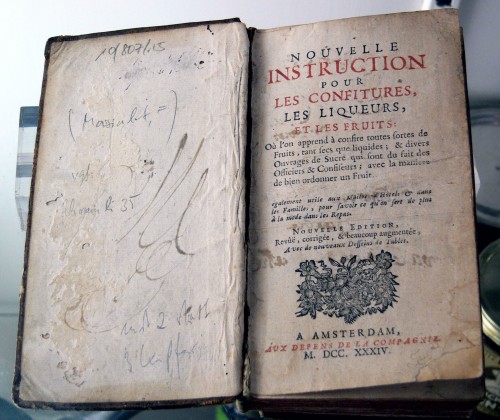 19/807/15
NOUVELLE
INSTRUCTION
POUR
LES CONFITURES,
LES LIQUEURS,
ET LES FRUITS:
Où l'on apprend à confire toutes sortes de
Fruits, tant secs que liquides; & divers
Ouvrages de Sucre qui sont du fait des
Officiers & Confiseurs; avec la maniere
de bien ordonner un Fruit.
également utile aux Maitres-d'Hôtels & dans
les Familles, pour savoir ce qu'on sert de plus
à la mode dans les Repas.
NOUVELLE EDITION,
Revûë, corrigée, & beaucoup augmentée,
Avec de nouveaux Desseins de Tables.
A AMSTERDAM,
AUX DEPENS DE LA COMPAGNIE.
M. DCC. XXXIV.